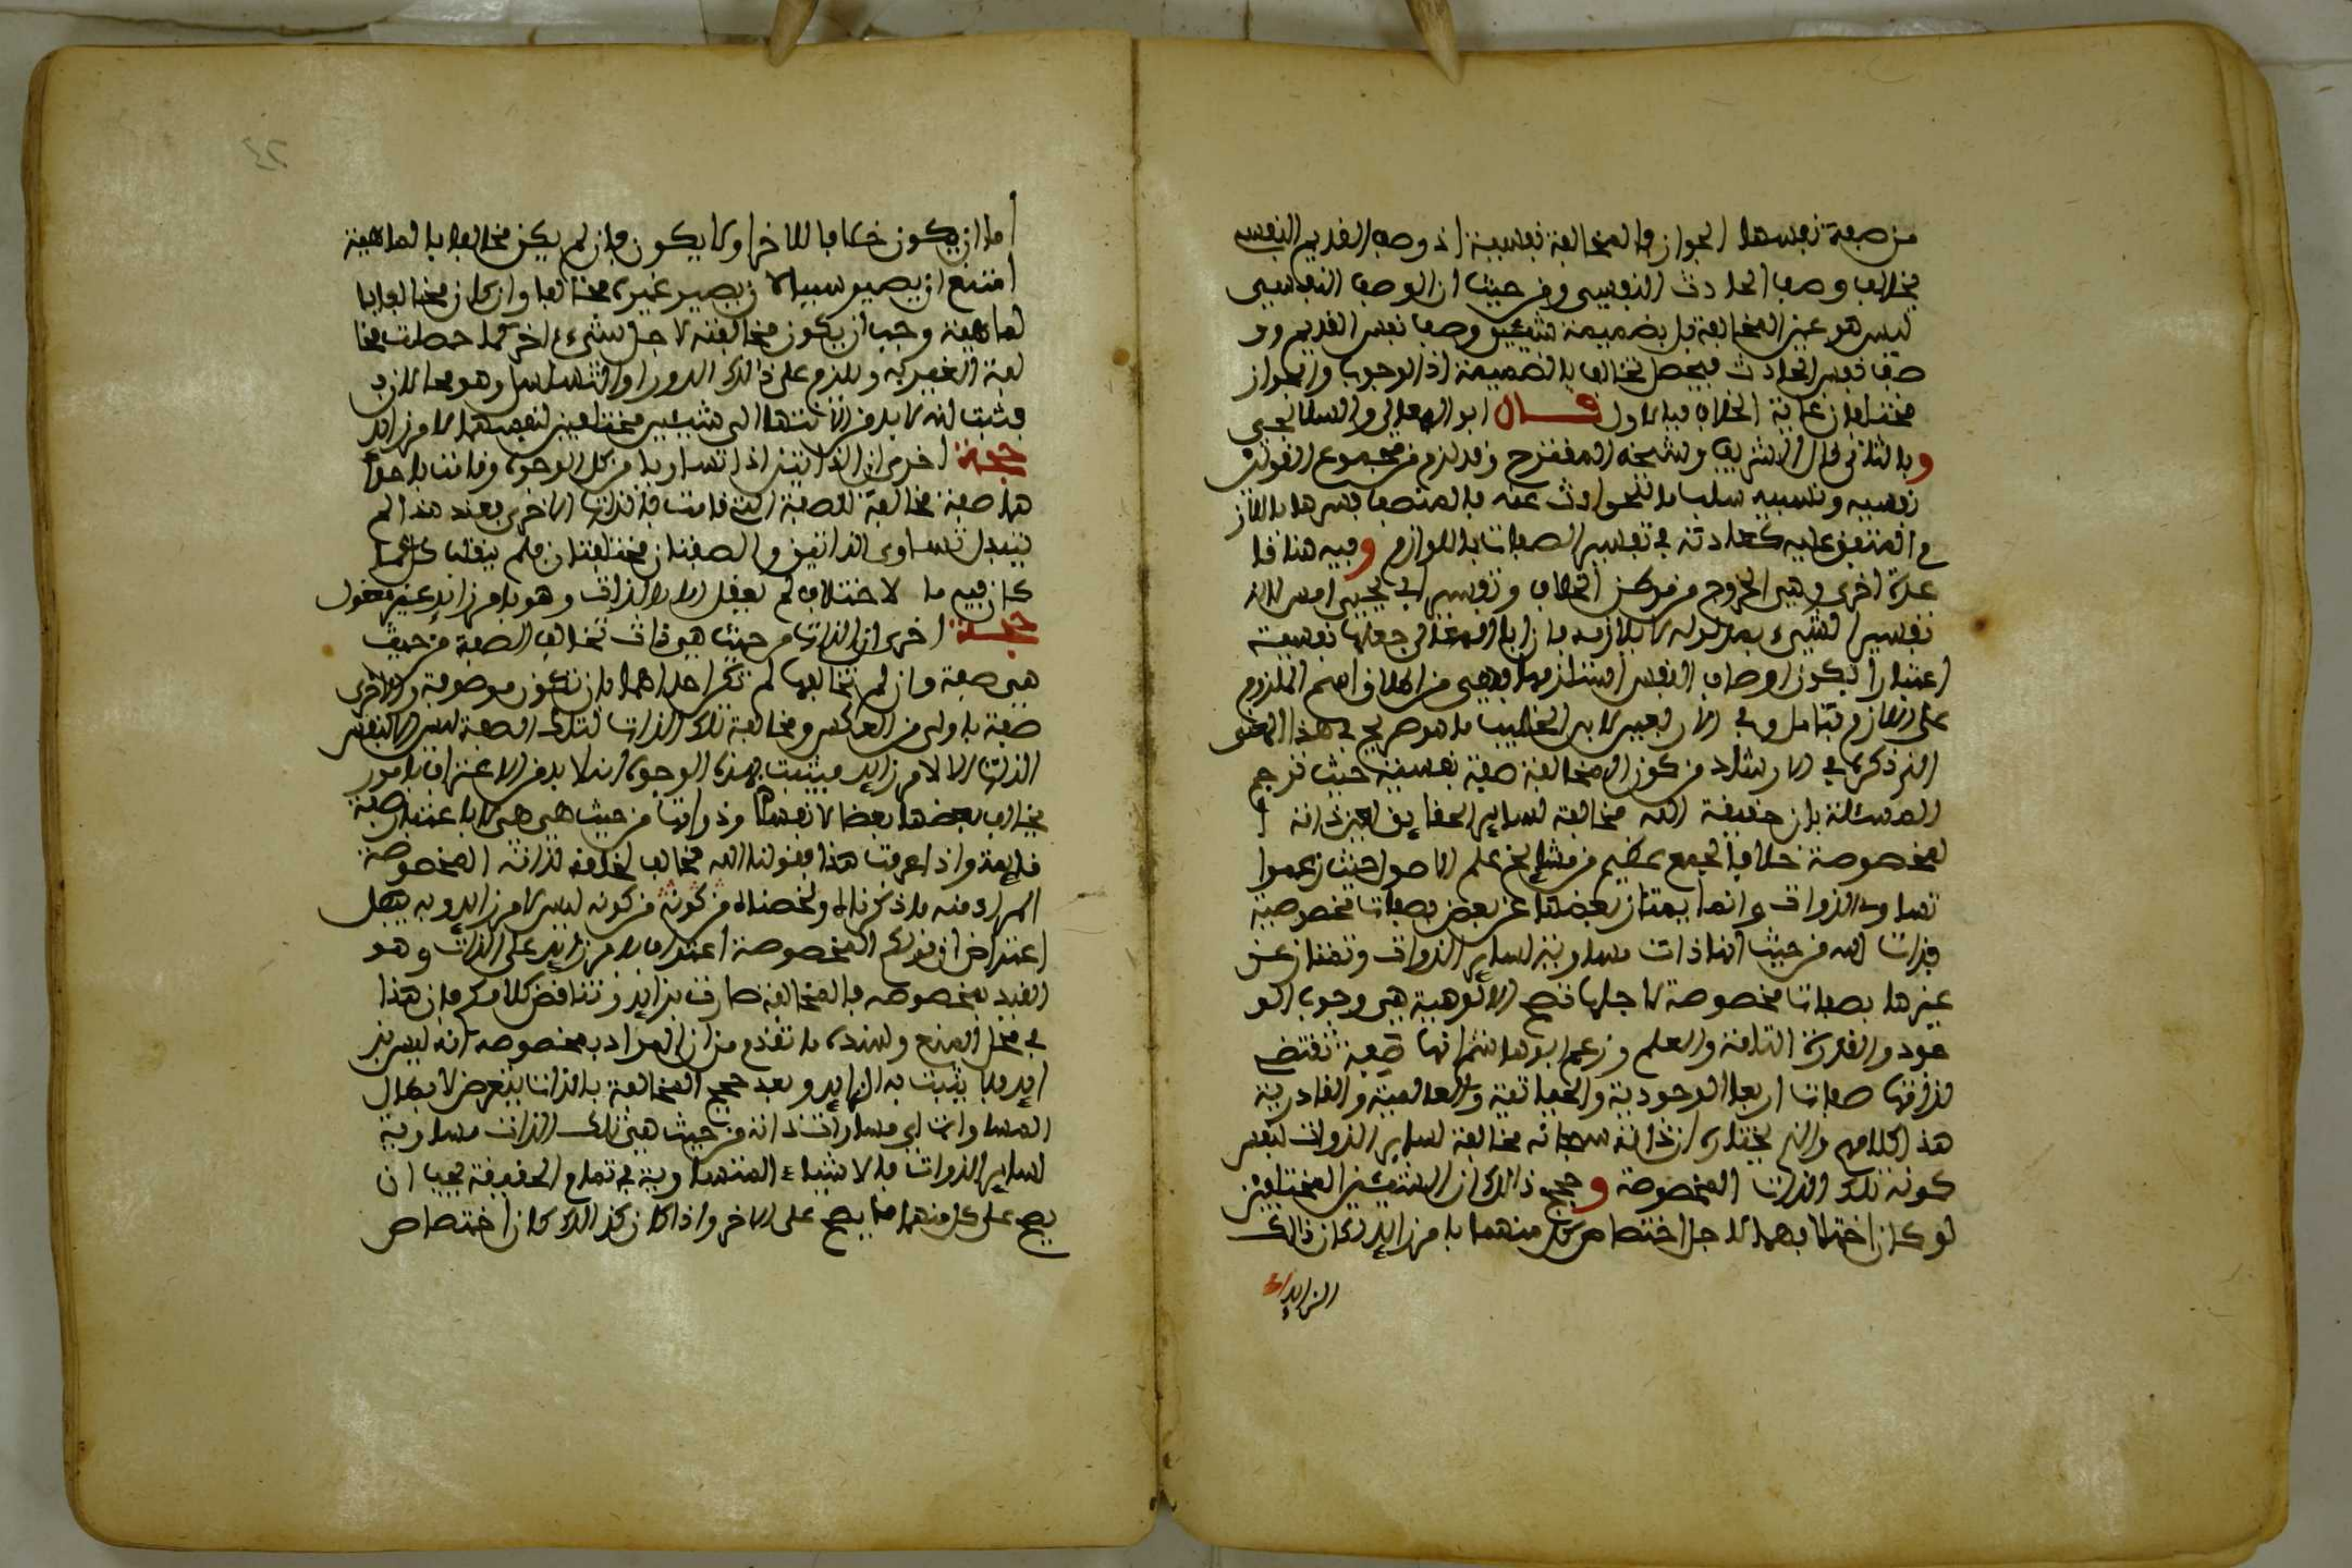 من صفة نفسها الجواز فالمخالفة نفسية اذ وصف القديم النفسي
يخالف وصف الحادث النفسي ومن حيث ان الوصف النفسي
ليس هو عين المخالفة بل بضميمة شيئين وصف نفس القديم وو
صف نفس الحادث فيحصل تخالف بالضميمة اذ الوجوب والجواز
مختلفان غاية الخلاف فبالاول قال ابو المعالي والسلالجي
وبالثاني قال الشريف وشيخه المقترح وقد لزم من مجموع القولين
نفسيه ونسبيه سلب ما للحوادث عنه فالمتصف فسرها باللاز
م المتفق عليه كعادته في تفسير الصفات باللوازم وفيه هنا فا
ئدة اخرى وهي الخروج من الخلاف وتفسير ابي يحيى امس لان
تفسير الشيء بمدلوله لا بلازمه فان ابا المعالي جعلها نفسية
اعتبارا بكون اوصاف النفس استلزمها فهي من اطلاق اسم الملزوم
على اللازم فتامل وفي الاربعين لابن الخطيب ما هو صريح في هذا المعنى
الذي ذكره في الارشاد من كون المخالفة صفة نفسية حيث ترجم
المسئلة بان حقيقة الله مخالفة لساير الحقايق لعين ذاته ا
لمخصوصة خلافا لجمع عظيم من مشايخ علم الاصول حيث زعموا
تساوى الذوات وانما يمتاز بعضها عن بعض بصفات مخصوصة
فذات الله من حيث انها ذات مساوية لساير الذوات وتمتاز عن
غيرها بصفات مخصوصة لاجلها تصح الالوهية هي وجوب الو
جود والقدرة التامة والعلم وزعم ابو هاشم انها صفة تقتضي
لذاتها صفات اربعا الوجودية والحياتية والعالمية والقادرية
هذا كلامهم والذي نختاره ان ذاته سبحانه مخالفة لساير الذوات لنفس
كونه تلك الذات المخصوصة وحجج ذالك ان الشيئين المختلفين
لو كان اختلافهما لاجل اختصاص كل منهما بامر زايد لكان ذالك
الزايد
اما ان يكون خلافا للاخر او لا يكون فان لم يكن مخالفا بالماهية
امتنع ان يصير سببا لان يصير غيره مخالفا وان كان مخالفا با
لماهية وجب ان يكون مخالفته لا لاجل شيء اخر كما حصلت مخا
لفة الغير به ويلزم على ذالك الدور او التسلسل وهو محال
فثبت انه لا بد من الانتهاء الى شيئين مختلفين لنفسهما لا لامر زايد
حجة اخرى ان الذاتين اذا تساويا من كل الوجوه وقامت باحدا
هما صفة مخالفة للصفة التي قامت بالذات الاخرى فعند هذا لم
يتبدل تساوى الذاتين والصفتان مختلفتان فلم ينقلب
كان فيه ما لاختلاف لم يعقل الا بالذات وهو بامر زايد غير معقول
حجة اخرى ان الذات من حيث هي ذات تخالف الصفة من حيث
هي صفة وان لم تخالفها لم تكن احداهما بان تكون موصوفة والاخرى
صفة باولى من العكس ومخالفة تلك الذات لتلك الصفة ليس الا لنفس
الذات لا لامر زايد فيثبت بهذه الوجوه انه لا بد من الاعتراف بامور
يخالف بعضها بعضا لانفسها وذواتها من حيث هي هي لا باعتبار صفة
قايمة واذا عرفت هذا فقولنا الله مخالف لخلقه لذاته المخصوصة
المراد منه ما ذكرناه ولخصناه من كونه من كونه ليس لامر زايد وبه يبطل
اعتراض ان قولكم المخصوصة اعتراف بامر زايد على الذات وهو
القيد بمخصوصه فالمخالفة صارت بزايد وتناقض كلامكم فان هذا
في محل المنع وسنده ما تقدم من ان المراد بمخصوصه انه ليس بز
ايد فلا يثبت به الزايد وبعد حجج المخالفة بالذات يتعرض لابطال
المساوات اي مساوات ذاته من حيث هي تلك الذات مساوية
لساير الذوات فالاشياء المتساوية في تمام الحقيقة يجب ان
يصح على كل منهما ما يصح على الاخر واذا كان كذالك كان اختصاص